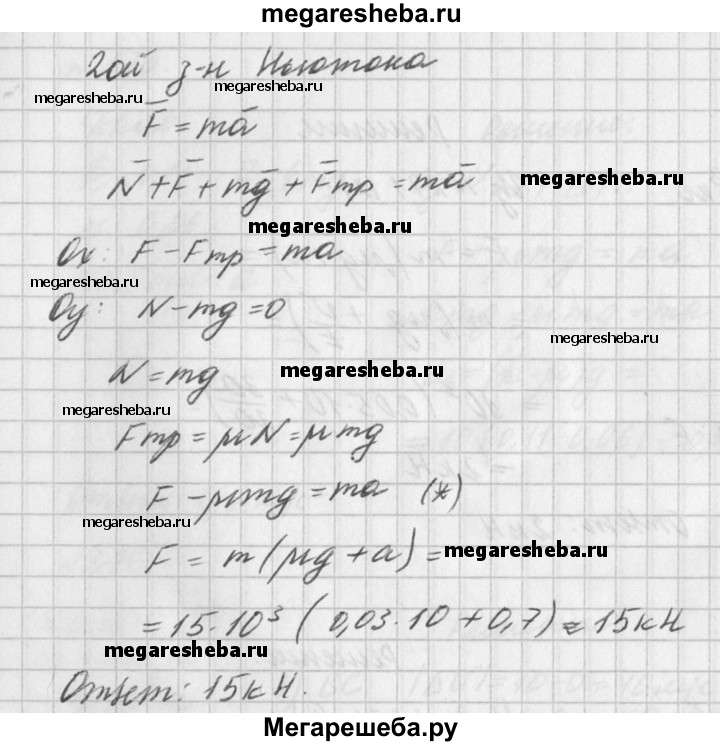 megaresheba.ru
2ой з-н Ньютона
megaresheba.ru
megaresheba.ru
F̄ = mā
N̄ + F̄ + mḡ + F̄тр = mā
megaresheba.ru
megaresheba.ru
Ox: F - Fтр = ma
megaresheba.ru
Oy: N - mg = 0
megaresheba.ru
N = mg
megaresheba.ru
megaresheba.ru
Fтр = μN = μmg
F - μmg = ma (*)
megaresheba.ru
F = m(μg + a) =
megaresheba.ru
= 15·10³ (0,03·10 + 0,7) = 15кН
megaresheba.ru
Ответ: 15кН.
Мегарешеба.ру